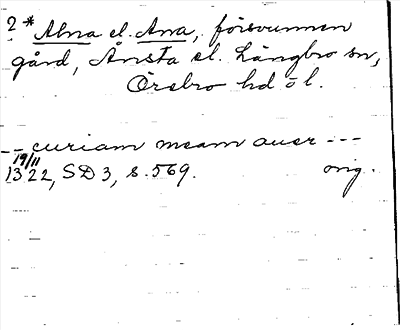 2* Alna el. Ana, försvunnen
gård, Ånsta el. Längbro sn,
Örebro hd o l.
-- curiam meam auer ---
19/11
1322, SD 3, s. 569. orig.